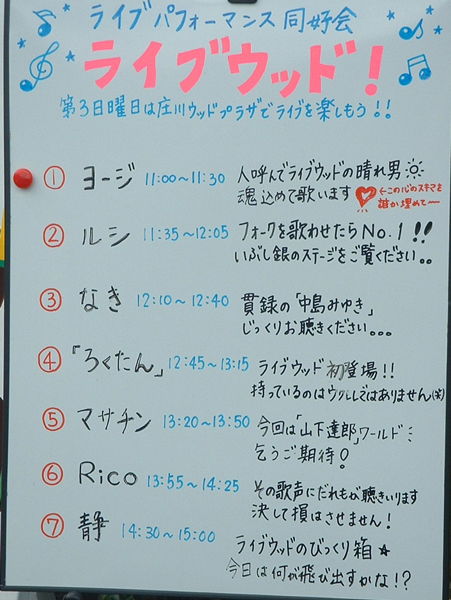 ライブパフォーマンス同好会
ライブウッド!
第3日曜日は庄川ウッドプラザでライブを楽しもう!!
① ヨージ 11:00~11:30 人呼んでライブウッドの晴れ男
魂込めて歌います ←この心のスキマを
誰か埋めて~
② ルシ 11:35~12:05 フォークを歌わせたらNo.1!!
いぶし銀のステージをご覧ください。。
③ なき 12:10~12:40 貫録の「中島みゆき」
じっくりお聴きください。。。
④ 「ろくたん」 12:45~13:15 ライブウッド初登場!!
持っているのはウクレレではありません(笑)
⑤ マサチン 13:20~13:50 今回は「山下達郎」ワールド
乞うご期待!
⑥ Rico 13:55~14:25 その歌声にだれもが聴きいります
決して損はさせません!
⑦ 静 14:30~15:00 ライブウッドのびっくり箱★
今日は何が飛び出すかな!?